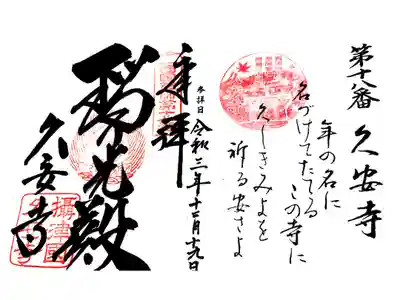 第十八番 久安寺
年の名に
名づけてたてるこの寺に
久しきみよを
祈る安さよ
参拝日 令和三年十二月十九日
奉拝
瑞光殿
久安寺
攝津國